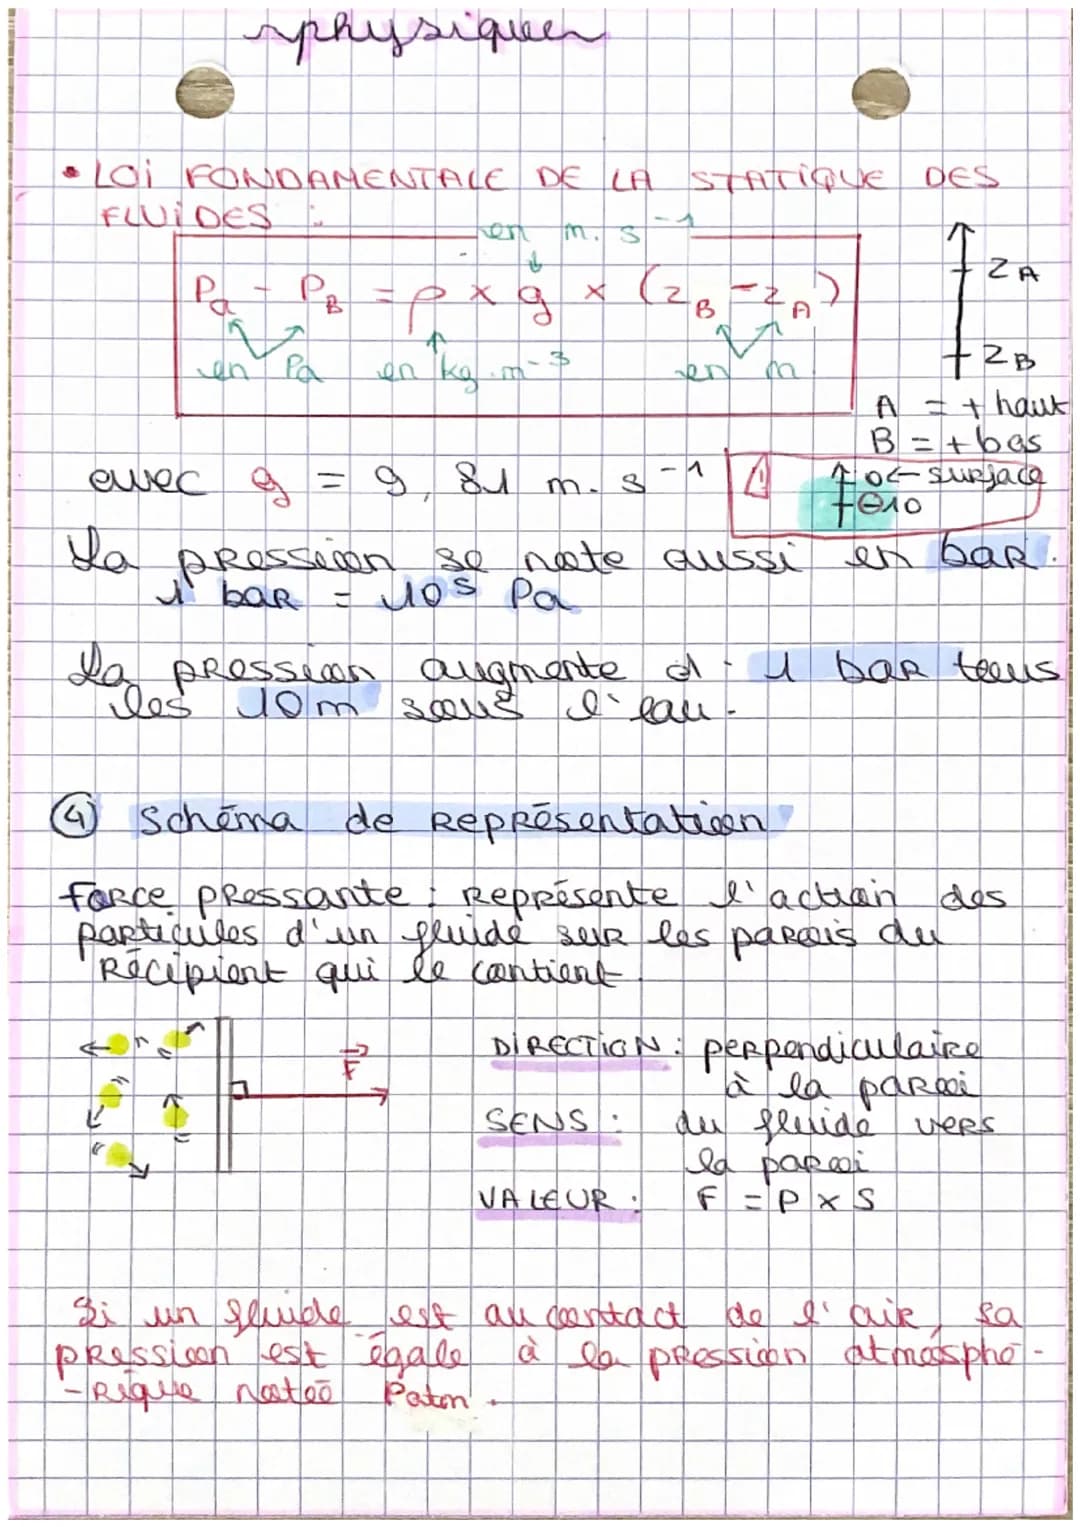 physiques
• LOi FONDAMENTALE DE LA STATiQUE DES
FLUiDES :
en m. s⁻¹
Pa - PB = ρ x g x (zB - zA)
en Pa en kg.m⁻³ en m
zA
zB
A = + haut
B = + bas
avec g = 9,81 m.s⁻¹
! 0 ← surface
⊖10
La pression se note aussi en bar.
1 bar = 10⁵ Pa
La pression augmente d' 1 bar tous
les 10m sous l'eau.
④ Schéma de représentation
Force pressante : Représente l'action des
particules d'un fluide sur les parois du
Récipient qui le contient.
F
DiRECTiON : perpendiculaire
à la paroi
SENS : du fluide vers
la paroi
VALEUR : F = P x S
Si un fluide est au contact de l'air, sa
pression est égale à la pression atmosphé-
-Rique notée Patm.